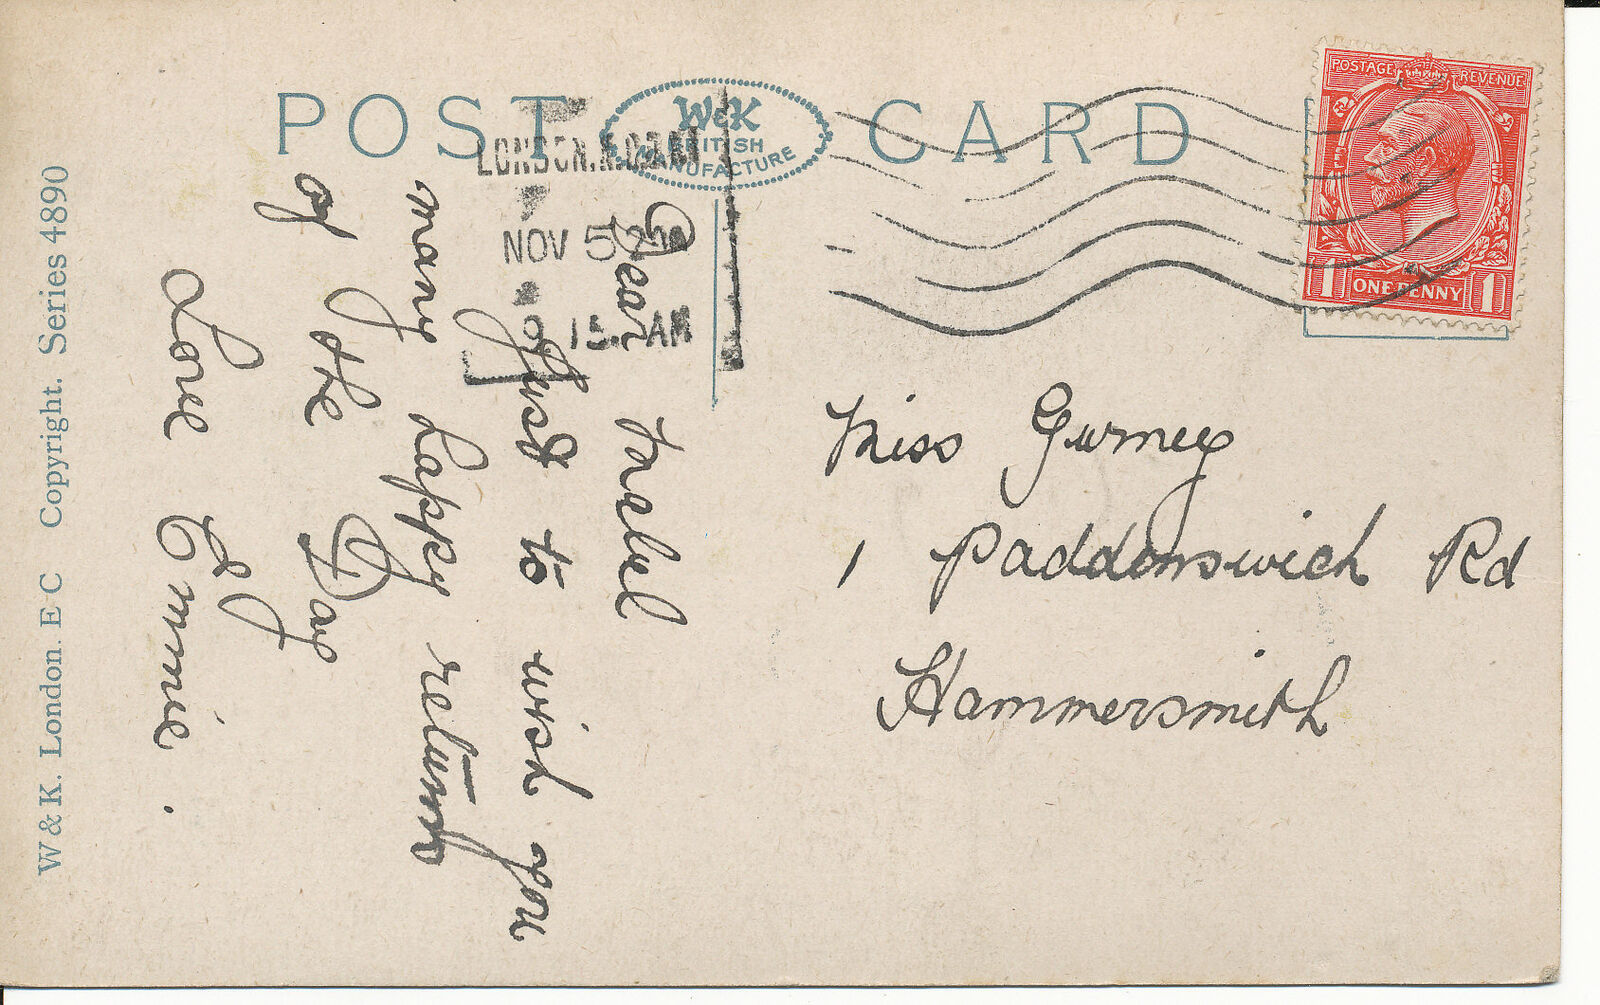 POST CARD
W&K
BRITISH
MANUFACTURE
LONDON.
NOV 5
15. AM
POSTAGE REVENUE
1 ONE PENNY 1
Dear Mabel
Just to wish you
many happy returns
of the Day
Love Emmie.
Miss Gurney
1 Paddenswick Rd
Hammersmith
W & K. London. E C Copyright. Series 4890